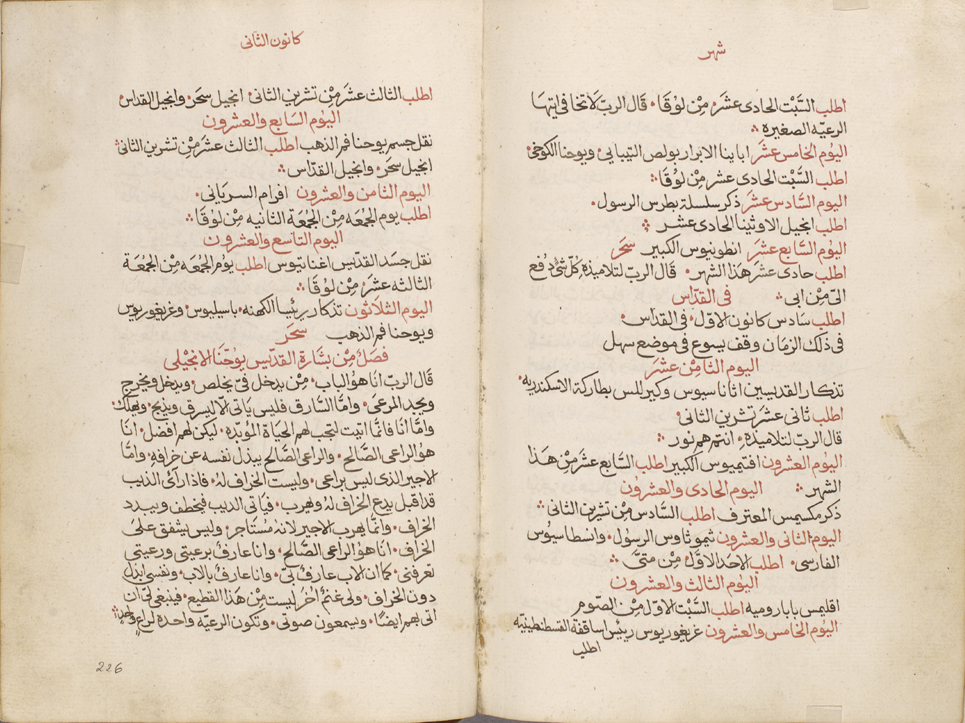 شهر
اطلب السَّبْت الحادى عشَر مِنْ لوُقا قال الربّ لا تخافى ايتها
الرعيّه الصغيره
اليوُم الخامس عشَر اباينا الابرار بولص التيبايى ويوحنا الكوخى
اطلب السَّبْت الحادى عشر مِنْ لوُقا
اليوم السَّادس عشر ذكر سلسلة بطرس الرسول
اطلب انجيل الاوثينا الحادى عشر
اليوُم السَّابع عشَر انطونيوس الكبير سَحَر
اطلب حادى عشَر هذا الشهر قال الربّ لتلاميذه كلّ شئ دُفع
الىّ مِنْ ابى في القدّاس
اطلب سَادس كانون الاوّل في القدّاس
في ذلك الزمَان وقف يسوع في موضع سهل
اليوم الثامِنْ عشَر
تذكار القديسين اثاناسيوس وكيرللس بطاركة الاسكندريه
اطلب ثانى عشَر تشرين الثانى
قال الربّ لتلاميذه انتم هم نور
اليوُم العشرون افتيميوس الكبير اطلب السَّابع عشَر مِنْ هذا
الشهر اليوم الحادى والعشروُن
ذكر مكسيمس المعترف اطلب السَّادس مِنْ تشرين الثانى
اليوم الثانى والعشرون تيموثاوس الرسول وانسطاسيوُس
الفارسى اطلب الاحَد الاوّل مِنْ متىَّ
اليوُم الثالث والعشرون
اقليمس بابا روميه اطلب السَّبْت الاوّل مِنْ الصَّوم
اليوُم الخامس والعشرون غريغوريوس رييس اساقفة القسطنطينيّه
اطلب
كانون الثانى
اطلب الثالث عشَر مِنْ تشرين الثانى انجيل سحَر وانجيل القداس
اليوُم السَّابع والعشرون
نقل جسم يوحنا فم الذهب اطلب الثالث عشَر مِنْ تشرين الثانى
انجيل سحَر وانجيل القدّاس
اليوم الثامن والعشرون افرام السريانى
اطلب يوم الجمُعَه مِنْ الجمُعَة الثانيه مِنْ لوُقا
اليوم التاسع والعشرون
نقل جسَد القدّيس اغناتيوس اطلب يوُم الجمُعَه مِنْ الجمُعَة
الثالثه عشَر مِنْ لوُقا
اليوم الثلاثون تذكار رئيسا الكهنه باسيليوس وغريغوريوس
ويوحنا فم الذهب سحَر
فصَل مِنْ بشارة القدّيس يوُحَنّا الانجيلى
قال الربّ انا هو الباب مِنْ يدخل فىّ يخلص ويدخل ويخرج
ويجد المرعى وامَّا السَّارق فليس ياتى الّا ليسرق ويذبح ويهلك
وامَّا انا فانّما اتيت لتجب لهم الحياة المُوبّده ليكن لهم افضل انا
هوُ الراعى الصَّالح والراعى الصَّالح يبذل نفسه عن خرافه وامَّا
الاجير الذى ليس براعى وليست الخراف لهُ فاذا رآئ الذيب
قد اقبل يدع الخراف لهُ ويهرب فياتى الذيب فيخطف ويبدد
الخراف وانّما يهرب الاجير لانهُ مُستاجر وليس يشفق على
الخراف انا هوُ الراعى الصَّالح وانا عارف برعيتى ورعيتى
تعرفنى كما ان الاب عارف بى وانا عارف بالاب ونفسى ابذل
دون الخراف ولى غنمٌ اُخرُ ليست مِنْ هذا القطيع فينبغى لى ان
اتى بهم ايضًا ويسمعون صوتى وتكون الرعيّه واحده لراعٍ واحدٍ
226